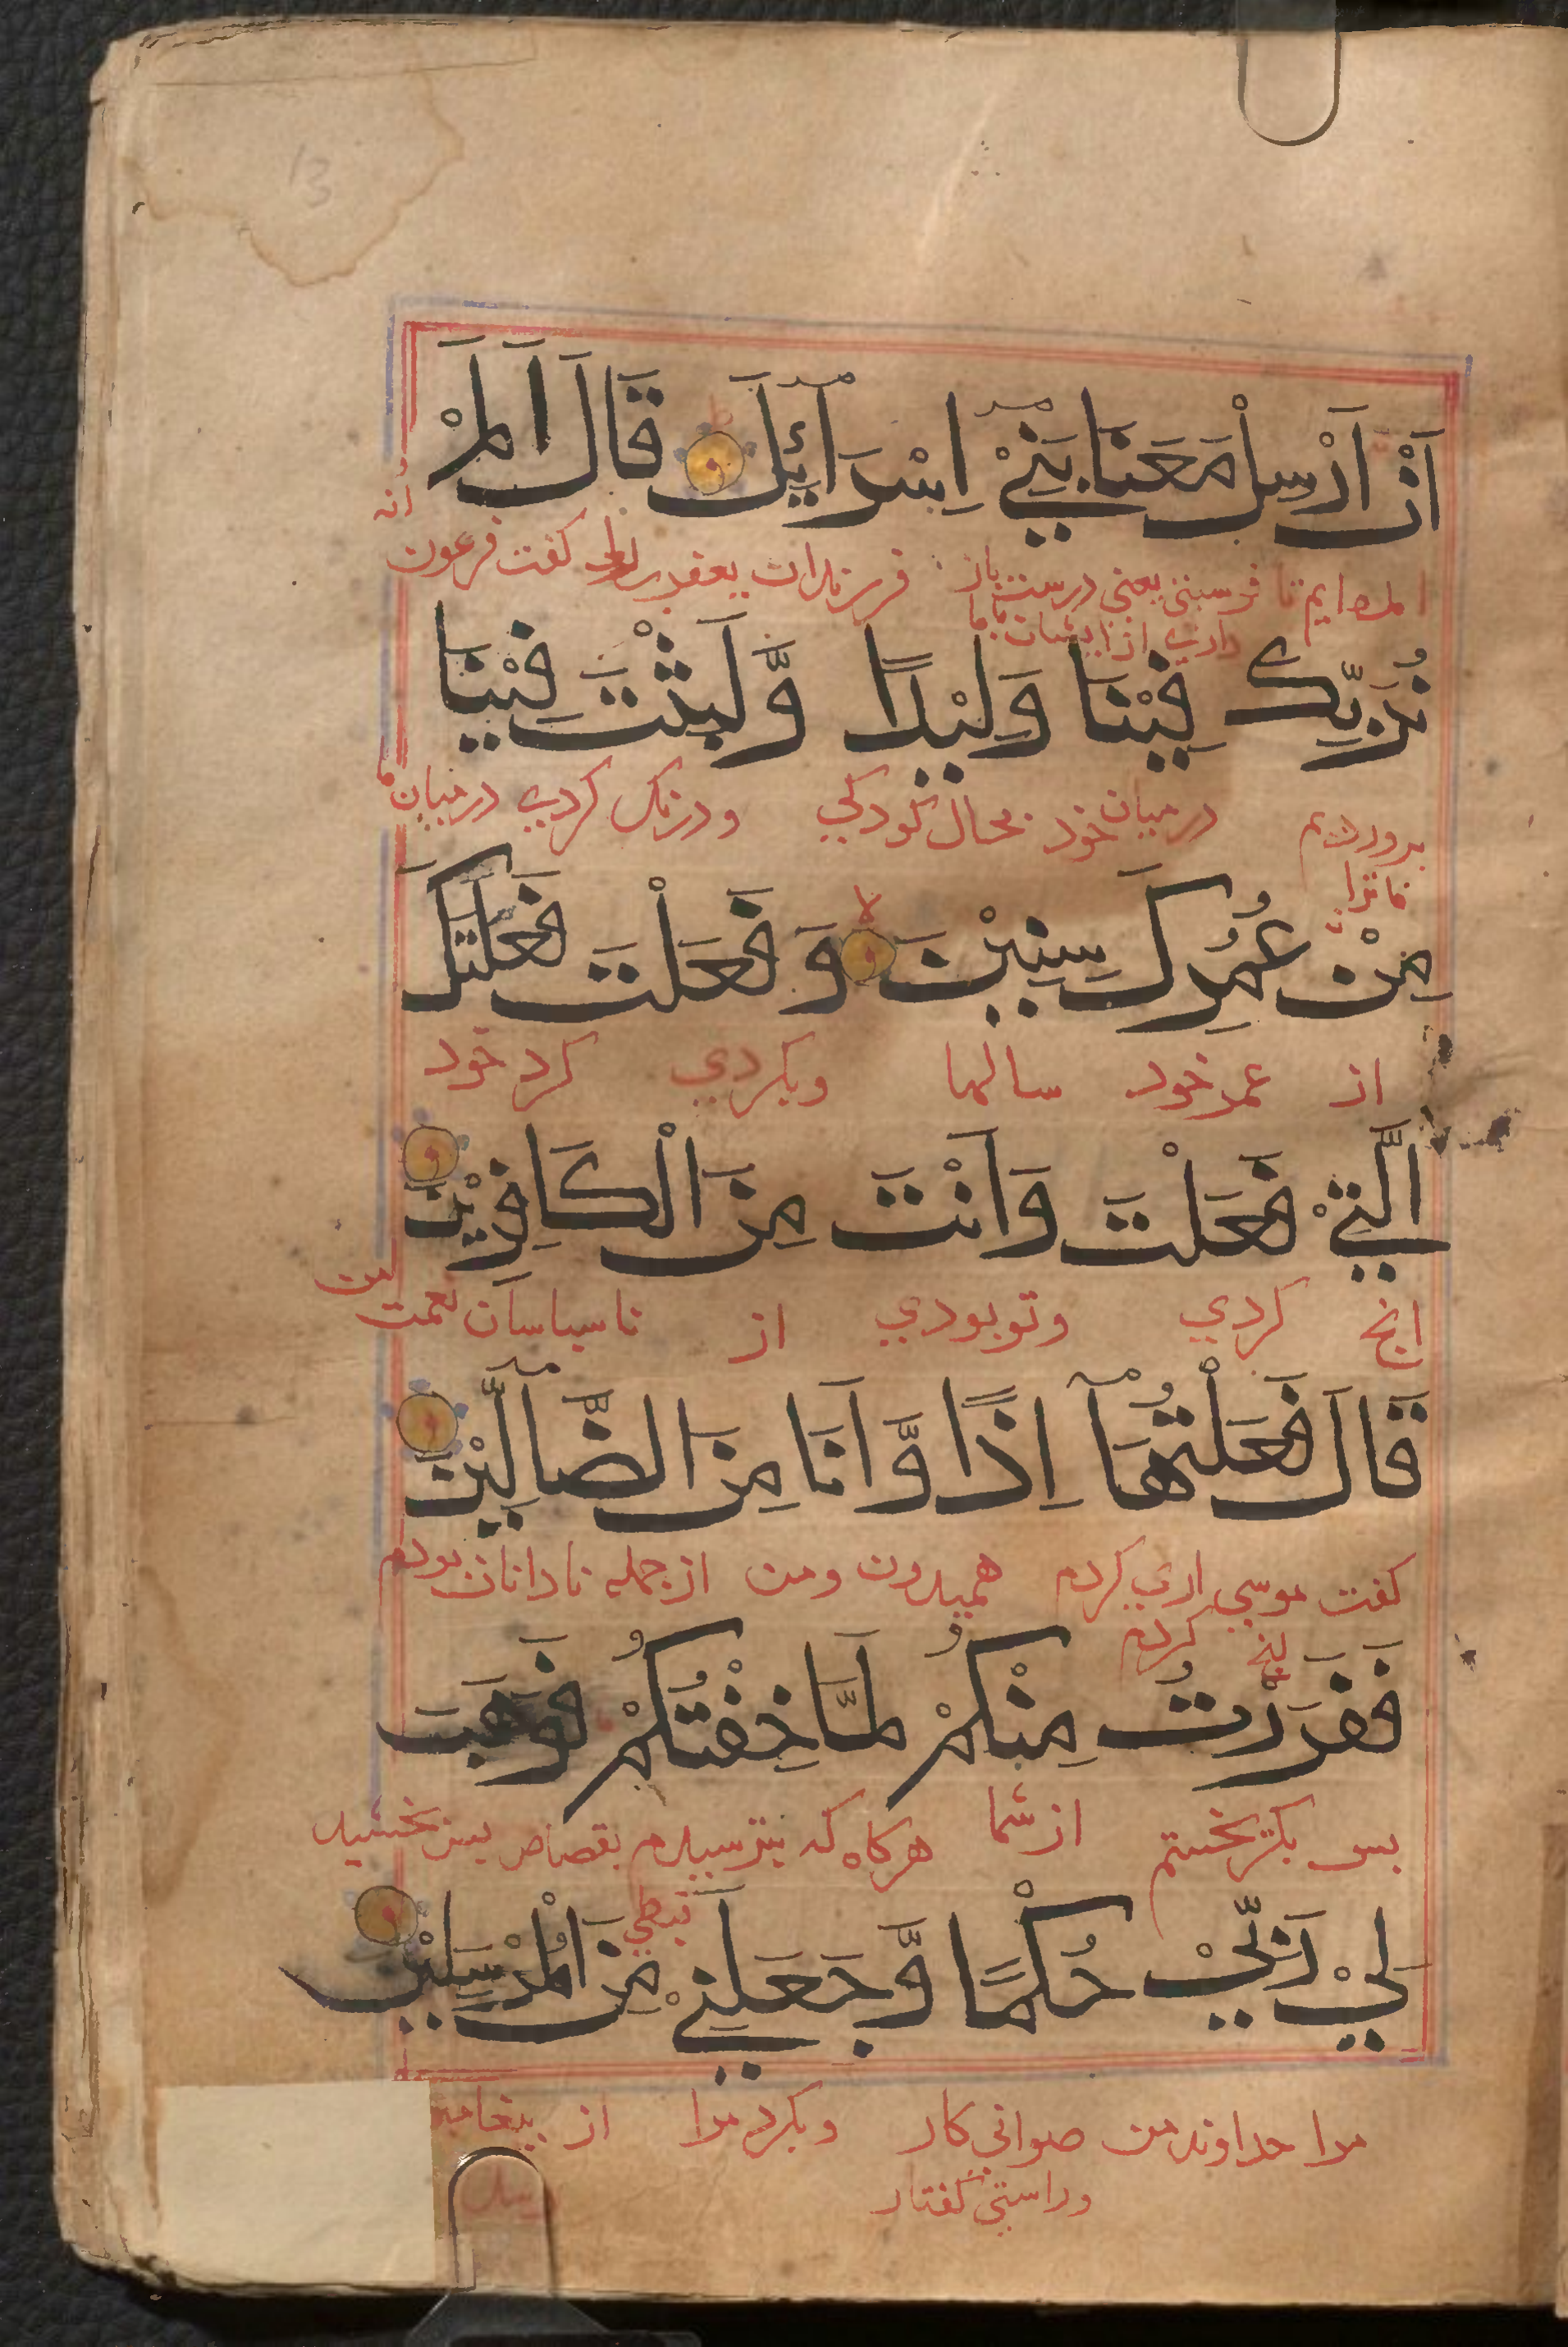 13
اَنْ اَرْسِلْ مَعَنَا بَنِيْ اِسْرَآئِيْلَ ط قَالَ اَلَمْ
امده ايم تا فرستني يعني درست باز فرزندان يعقوب گفت فرعون
داري از ايشان
نُرَبِّكَ فِيْنَا وَلِيْدًا وَّلَبِثْتَ فِيْنَا
درميان خود بحال كودكي ودرنك كردي درميان ما
ما ترا
مِنْ عُمُرِكَ سِنِيْنَ لا وَفَعَلْتَ فَعْلَتَكَ
از عمر خود سالها وبكردي كرد خود
الَّتِيْ فَعَلْتَ وَاَنْتَ مِنَ الْكَافِرِيْنَ
انچ كردي وتو بودي از ناسپاسان نعمت من
قَالَ فَعَلْتُهَآ اِذًا وَّاَنَا مِنَ الضَّآلِّيْنَ
كفت موسي اري كردم هميدون ومن ازجمله نادانان بودم
انچ كردم
فَفَرَرْتُ مِنْكُمْ لَمَّا خِفْتُكُمْ فَوَهَبَ
بس بكريختم از شما هركاه كه بترسيدم بقصاص بس بخشيد
قبطي
لِيْ رَبِّيْ حُكْمًا وَّجَعَلَنِيْ مِنَ الْمُرْسَلِيْنَ
مرا خداوند من صوابي كار وبكرد مرا از
وراستي كفتار